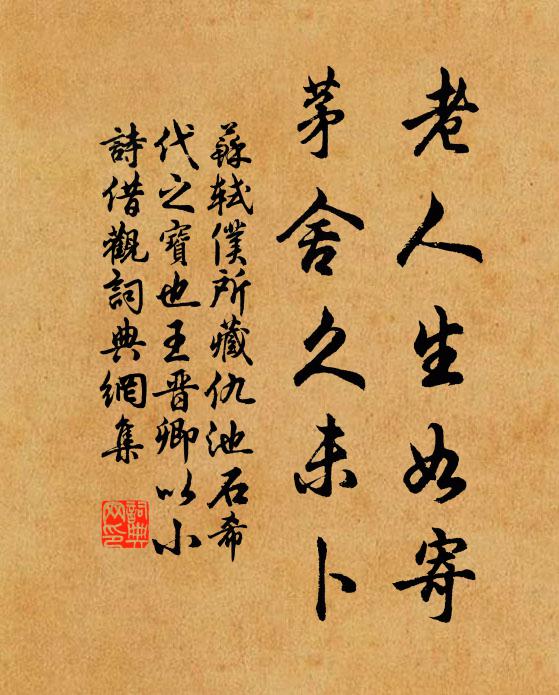 老人生如寄
茅舍久未卜
蘇軾僕所藏仇池石希
代之寶也王晋卿以小
詩借觀詞典網集
詞典
网印